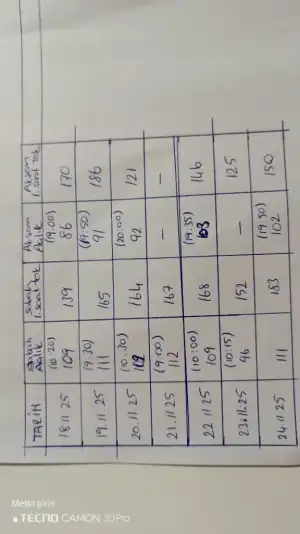 TARİH Sabah Açlık Sabah 1.saat tok Akşam Açlık Akşam 1.saat tok
18 11 25 (10:20) 109 139 (19.00) 86 170
19.11 25 (9:30) 111 165 (19:50) 91 186
20.11 25 (10.30) 102 164 (20:00) 92 121
21.11 25 (9:00) 112 167 — —
22 11 25 (10:00) 109 168 (19.35) 103 146
23.11.25 (10:15) 96 152 — 125
24.11 25 111 183 (19 30) 102 150
Metin girin
TECNO CAMON 20 Pro